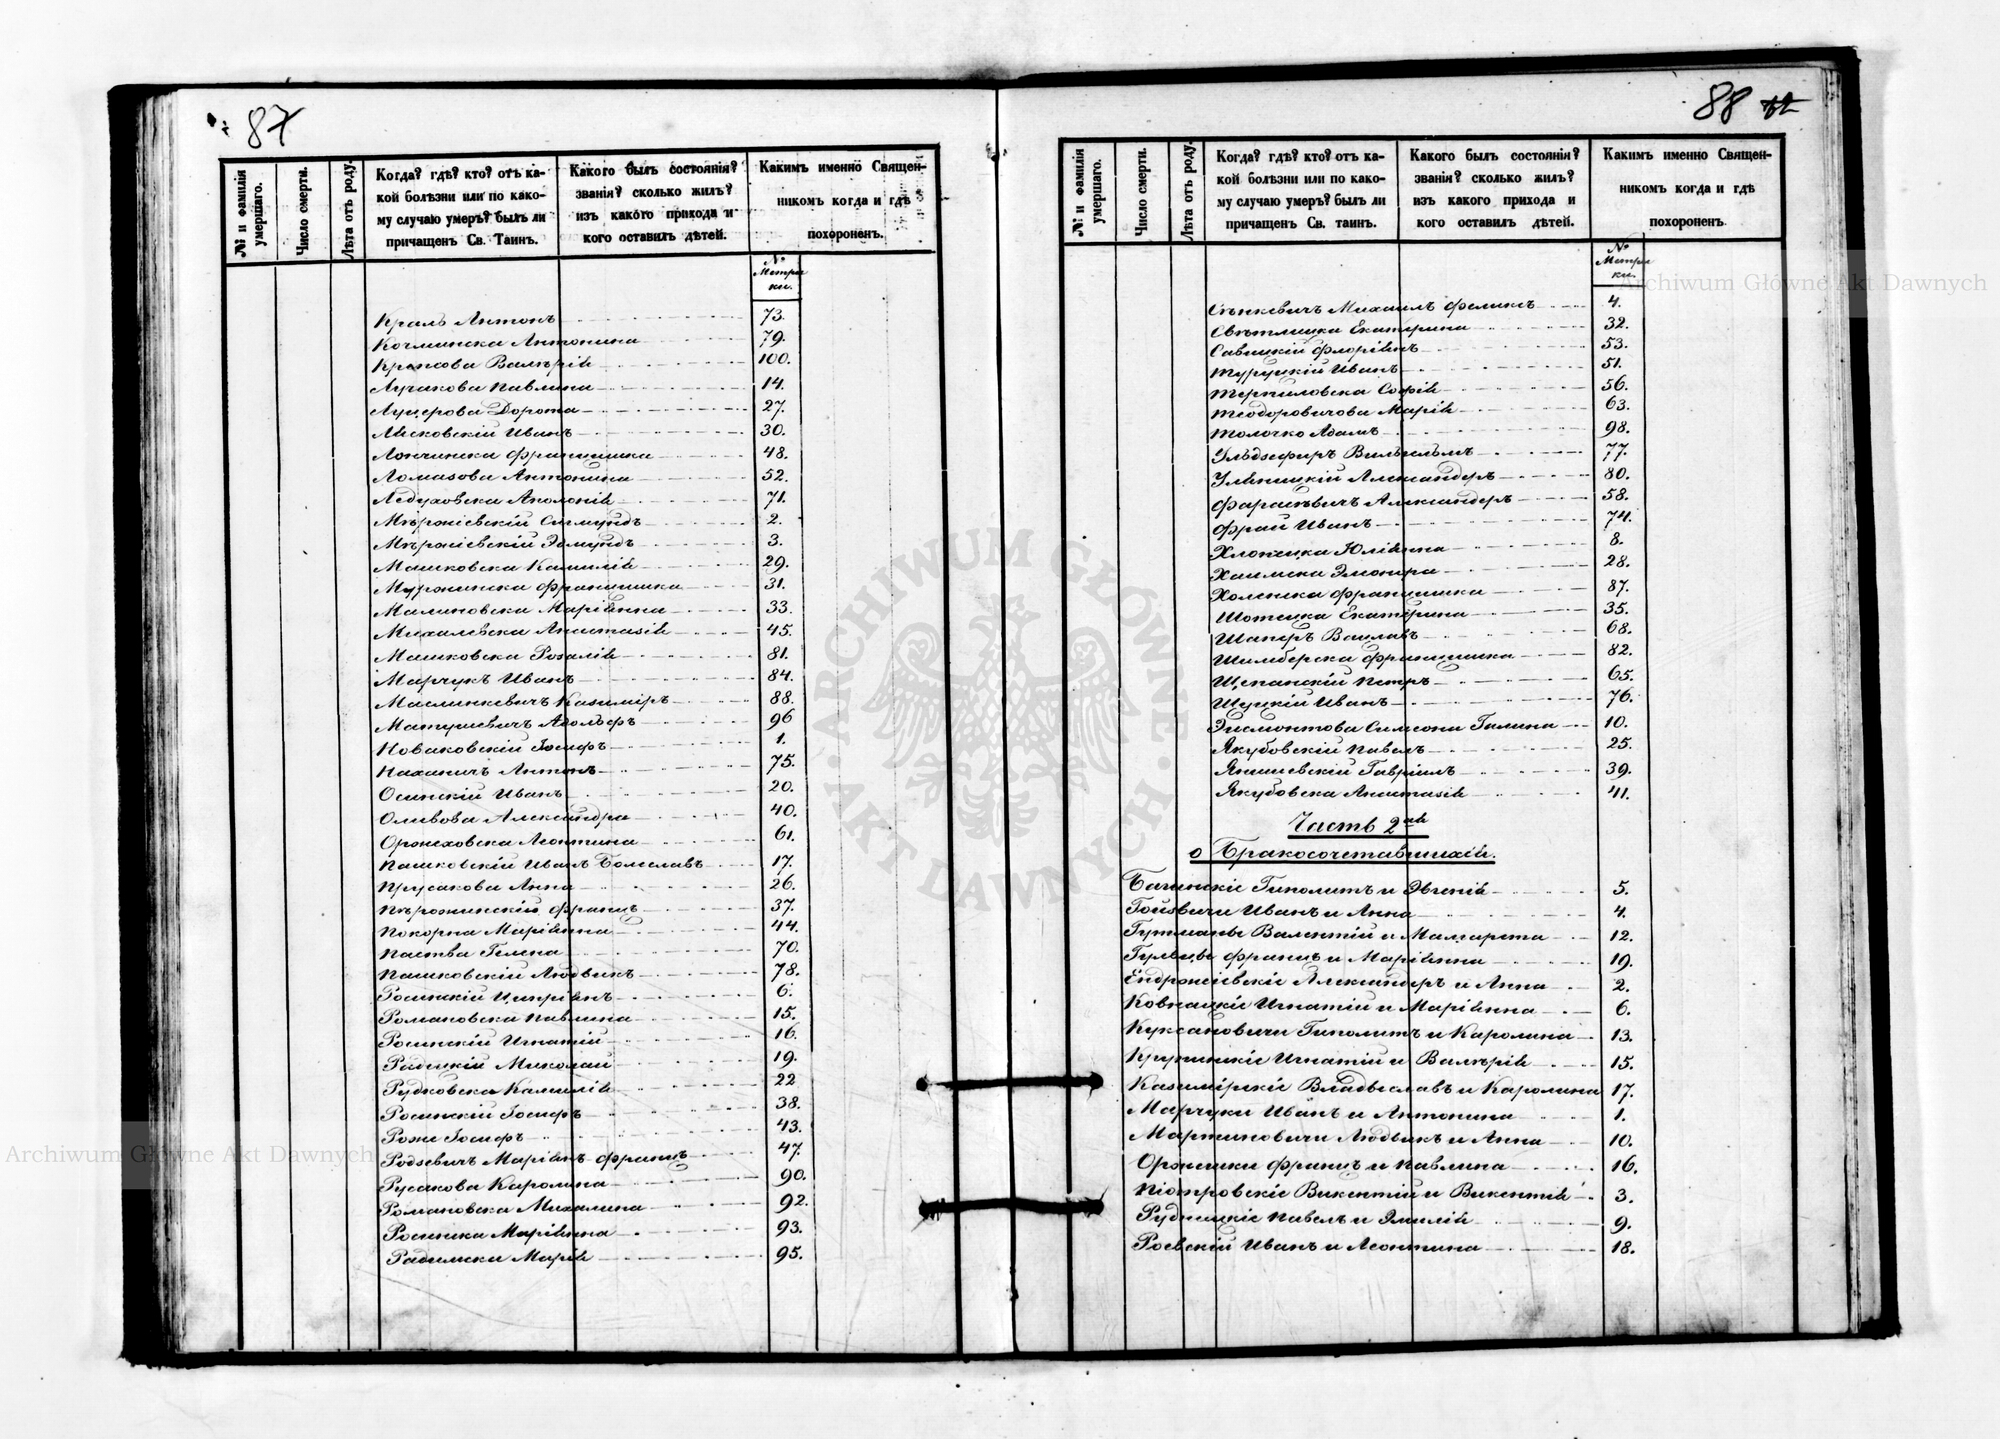 87
№ и фамилія умершаго.
Число смерти.
Лѣта отъ роду.
Когда? гдѣ? кто? отъ ка-
кой болѣзни или по како-
му случаю умеръ? былъ ли
причащенъ Св. Таин.
Какого былъ состоянія?
званія? сколько жилъ?
изъ какого прихода и
кого оставилъ дѣтей.
Какимъ именно Священ-
никомъ когда и гдѣ
похороненъ.
№
Метри
ки.
Краль Антонъ 73.
Кочминска Антонина 79.
Крысова Валѣрія 100.
Лучакова Павлина 14.
Луцерова Дорота 27.
Лисковскій Иванъ 30.
Лончинска Францишка 48.
Ломазова Антонина 52.
Ледуховска Аполонія 71.
Мѣржіевскій Сигмундъ 2.
Мѣржіевскій Эдмундъ 3.
Машковска Камилія 29.
Муржинска Францишка 31.
Малиновска Маріянна 33.
Михалевска Анастазія 45.
Машковска Розалія 81.
Марчукъ Иванъ 84.
Маслинкевичъ Казиміръ 88.
Матушевичъ Адольфъ 96
Новаковскій Іосифъ 1.
Наханичъ Антонъ 75.
Осинскій Иванъ 20.
Оливова Александра 40.
Оржеховска Леонтина 61.
Пашковскій Иванъ Болеславъ 17.
Прусакова Анна 26.
Пѣрожинскій Францъ 37.
Покорна Маріянна 44.
Паства Гелена 70.
Пашковскій Людвикъ 78.
Росинскій Ципріянъ 6.
Романовска Павлина 15.
Росинскій Игнатій 16.
Радецкій Миколай 19.
Рудковска Камилія 22
Росинскій Іосифъ 38.
Рожи Іосифъ 43.
Родзевичъ Маріанъ Францъ 47.
Русакова Каролина 90.
Романовска Михалина 92.
Росинска Маріянна 93.
Радимска Марія 95.
88
№ и фамилія умершаго.
Число смерти.
Лѣта отъ роду.
Когда? гдѣ? кто? отъ ка-
кой болѣзни или по како-
му случаю умеръ? былъ ли
причащенъ Св. таин.
Какого былъ состоянія?
званія? сколько жилъ?
изъ какого прихода и
кого оставилъ дѣтей.
Какимъ именно Священ-
никомъ когда и гдѣ
похороненъ.
№
Метри
ки.
Сѣнкевичъ Михаилъ Феликсъ 4.
Свѣтлицка Екатерина 32.
Савицкій Флоріянъ 53.
Туруцкій Иванъ 51.
Терпиловска Софія 56.
Теодоровичова Марія 63.
Толочко Адамъ 98.
Ульдзефиръ Вильгельмъ 77.
Улѣницкій Александеръ 80.
Фарашевичъ Александеръ 58.
Фрай Иванъ 74.
Хлопицка Юліянна 8.
Хаимска Эльжира 28.
Холенска Францишка 87.
Шотецка Екатерина 35.
Шаперъ Вацлавъ 68.
Шимберска Францишка 82.
Щепанскій Петръ 65.
Щуцкій Иванъ 76.
Эйсмонтова Симеона Галина 10.
Якубовскій Павелъ 25.
Янишевскій Гавріилъ 39.
Якубовска Анастазія 41.
Часть 2ая
о Бракосочетавшихся.
Багинскіе Гиполитъ и Эвгенія 5.
Гойзвичи Иванъ и Анна 4.
Гутманы Валентій и Малгарета 12.
Гульцы Францъ и Маріянна 19.
Ендржіевскіе Александеръ и Анна 2.
Ковнацкіе Игнатій и Маріянна 6.
Куксановичи Гиполитъ и Каролина 13.
Крупинскіе Игнатій и Валѣрія 15.
Казимірскіе Владыславъ и Каролина 17.
Марчуки Иванъ и Антонина 1.
Мартиновичи Людвикъ и Анна 10.
Оржешки Францъ и Павлина 16.
Піотровскіе Викентій и Викентія 3.
Рудницкіе Павелъ и Эмилія 9.
Роевскій Иванъ и Леонтина 18.
ARCHIWUM GŁÓWNE AKT DAWNYCH
Archiwum Główne Akt Dawnych
Archiwum Główne Akt Dawnych